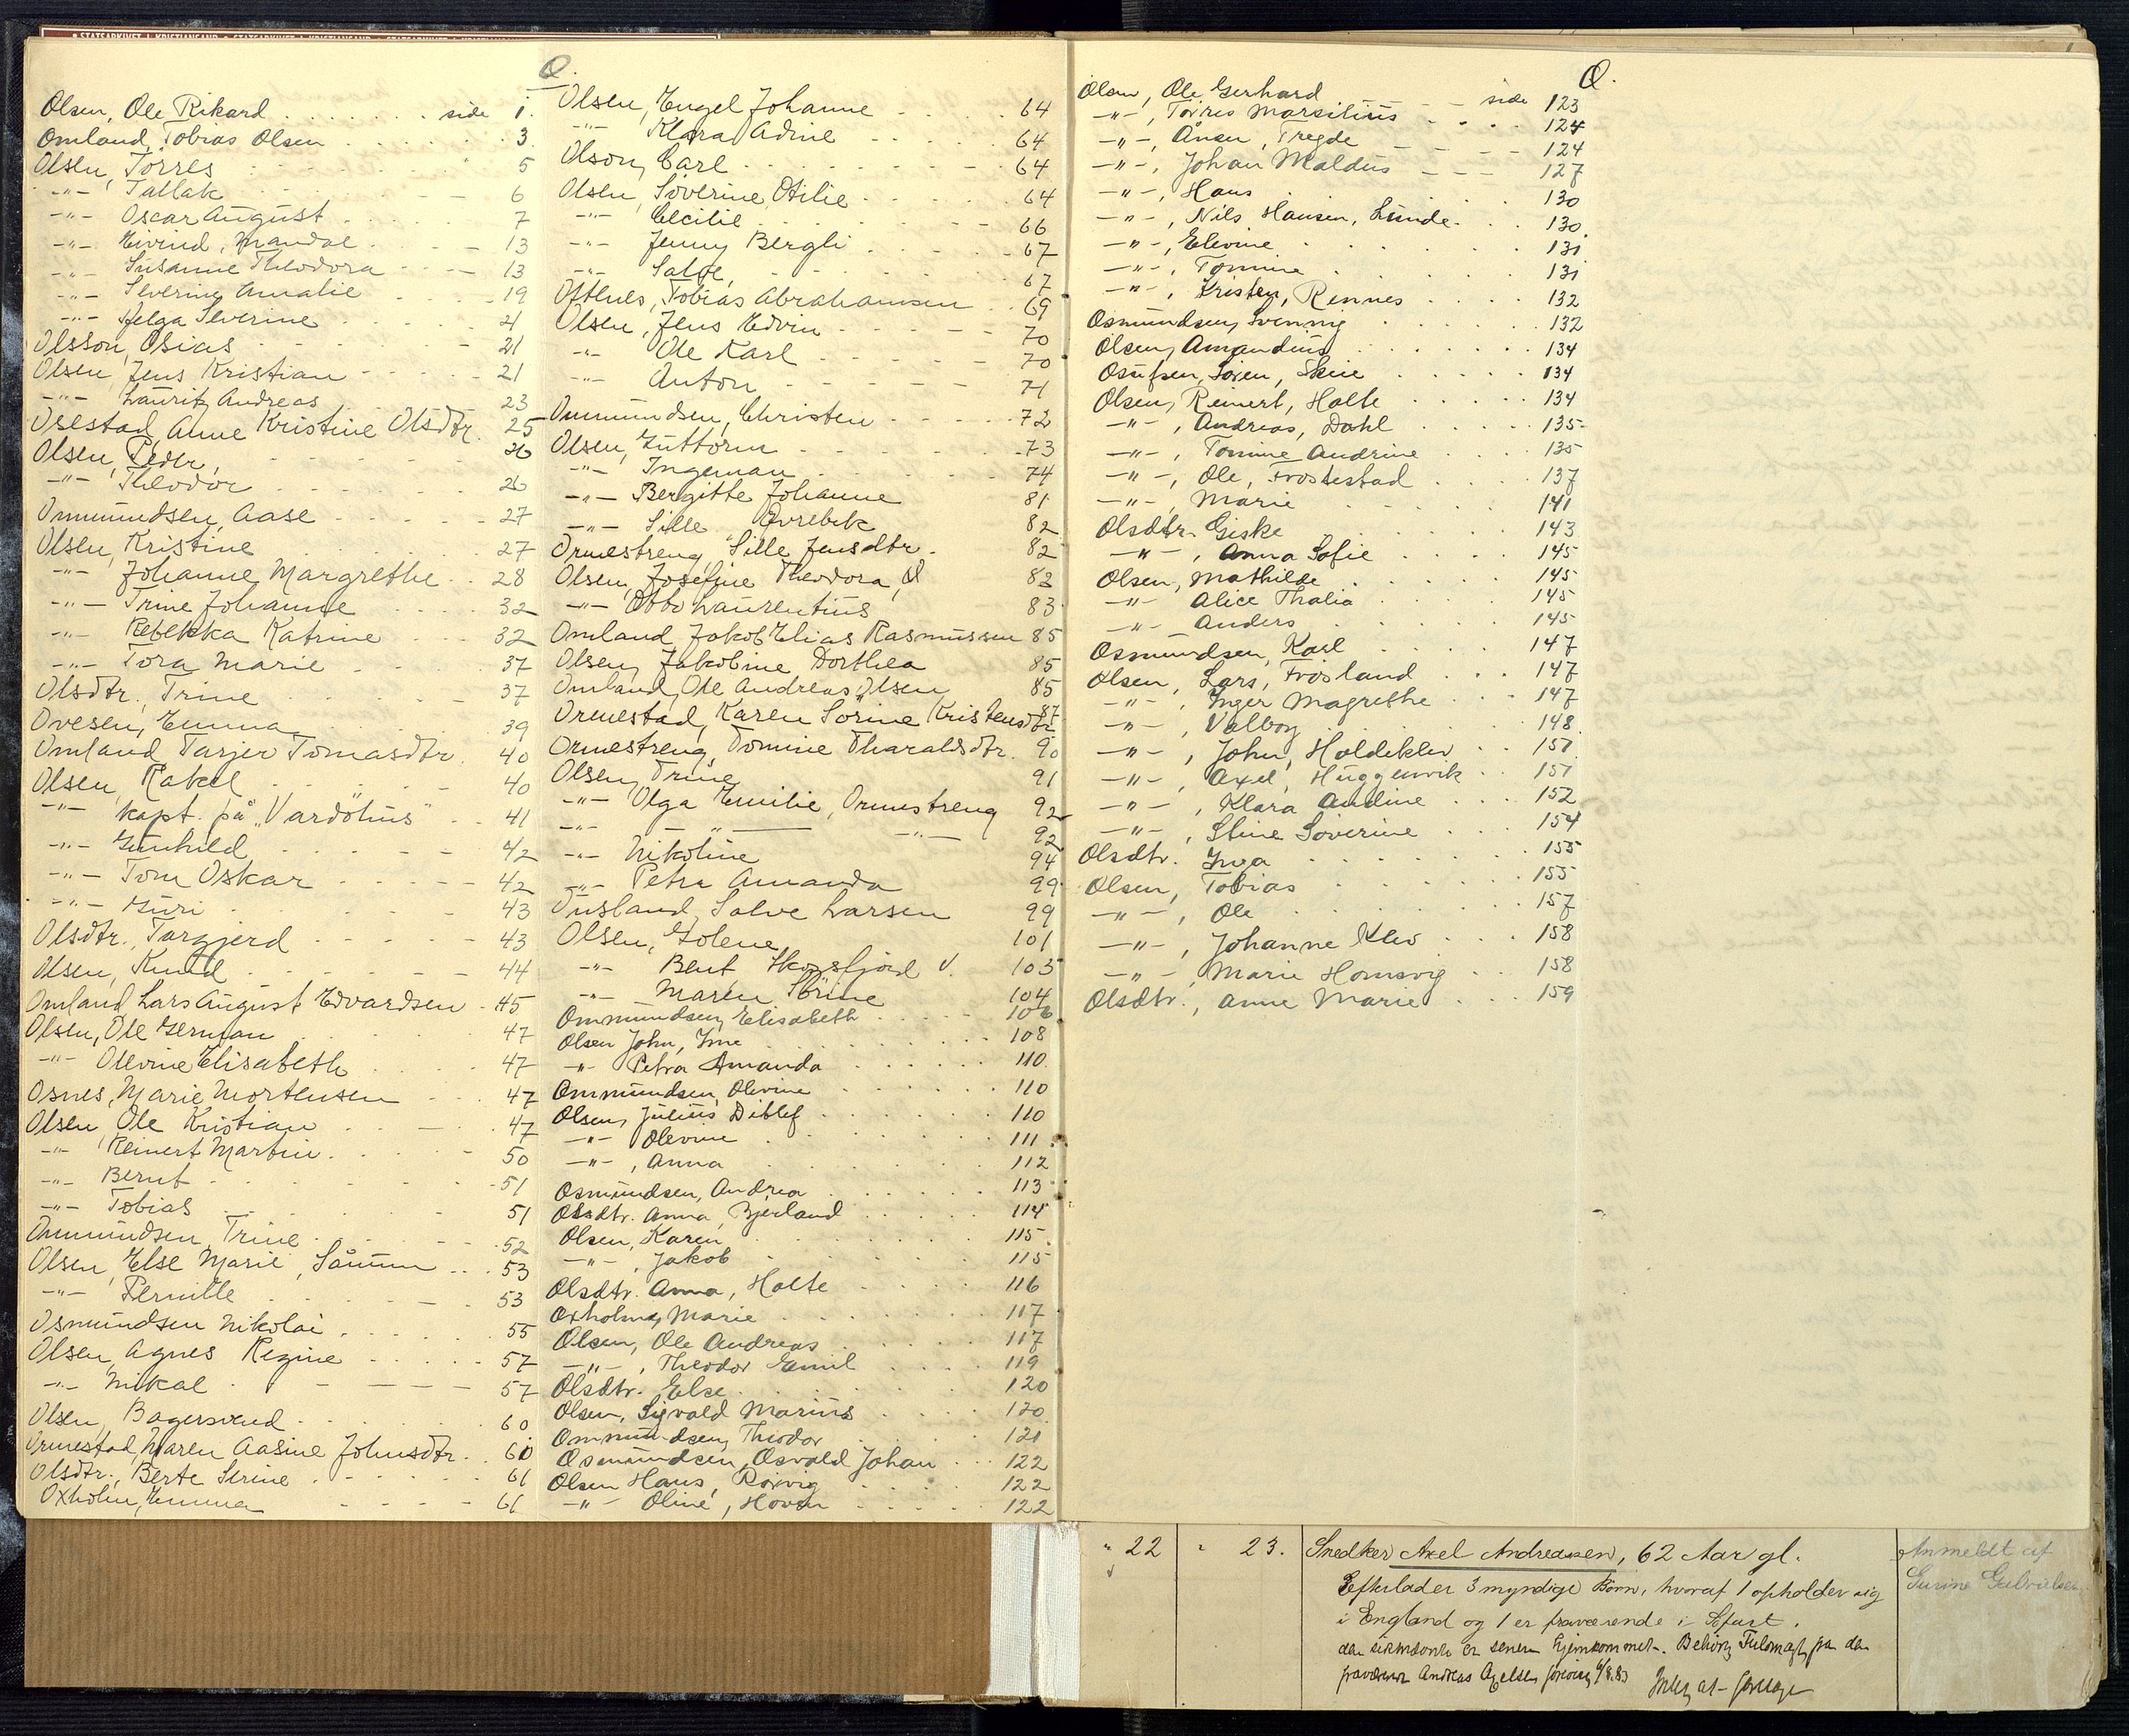 O.
Olsen, Ole Rikard . . . . . . . side 1.
Omland, Tobias Olsen . . . . . 3.
Olsen, Torres 5
-"- Tallak 6
-"- Oscar August 7
-"- Eivind, Mandal 13
-"- Susanne Theodora 13
-"- Severine Amalie 19
-"- Helga Severine 21
Olsson, Osias 21
Olsen, Jens Kristian 21
-"- Lauritz Andreas 23
Orestad, Anne Kristine Olsdtr. 25
Olsen, Peder, 26
-"- Theodor 26
Ommundsen, Aase 27
Olsen, Kristine 27
-"- Johanne Margrethe 28
-"- Trine Johanne 32
-"- Rebekka Katrine 32
-"- Tora Marie 37
Olsdtr., Trine 37
Ovesen, Emma 39
Omland Tarjer Tomasdtr. 40
Olsen, Rakel 40
-"- kapt. på "Vardöhus" 41
-"- Gunhild 42
-"- Tom Oskar 42
-"- Guri 43
Olsdtr., Targjerd 43
Olsen, Knud 44
Omland, Lars August Edvardsen 45
Olsen, Ole German 47
-"- Olevine Elisabeth 47
Osnes, Marie Mortensen 47
Olsen, Ole Kristian 47
-"- Reinert Martin 50
-"- Bernt 51
-"- Tobias 51
Ommundsen, Trine 52
Olsen, Else Marie, Sånum 53
-"- Pernille 53
Osmundsen Nikolai 55
Olsen, Agnes Regine 57
-"- Mikal 57
Olsen, Bagersvend 60
Ormestad, Maren Aasine Johnsdtr. 60
Olsdtr., Berte Serine 61
Oxholm, Emma 61
Olsen, Engel Johanne 64
-"- Klara Adine 64
Olson, Carl 64
Olsen, Söverine Otilie 64
-"- Cecilie 66
-"- Jenny Bergli 67
-"- Salve, 67
Oftenes, Tobias Abrahamsen 69
Olsen, Jens Edvin 70
-"- Ole Karl 70
-"- Anton 71
Ommundsen, Christen 72
Olsen, Guttorm 73
-"- Ingeman 74
-"- Bergitte Johanne 81
-"- Sille Övrebek 82
Ormestreng, Sille Jensdtr. 82
Olsen, Josefine Theodora, 82
-"- Obbo Laurentius 83
Omland, Jakob Elias Rasmussen 85
Olsen, Jakobine Dorthea 85
Omland, Ole Andreas Olsen 85
Ormestad, Karen Sorine Kristensdtr 87
Ormestreng, Tomine Tharaldsdtr. 90
Olsen, Trine 91
-"- Olga Emilie, Ormestreng 92
-"- -"- -"- 92
-"- Nikoline 94
-"- Petra Amanda 99
Ousland, Salve Larsen 99
Olsen, Golene 101
-"- Bent Skogsfjord V. 103
-"- Maren Sörine 104
Ommundsen, Elisabeth 106
Olsen John, Ime 108
-"- Petra Amanda 110.
Ommundsen, Olevine 110
Olsen, Julius Ditlef 110
-"- Olevine 111
-"-, Anna 112
Osmundsen, Andrea 113
Olsdtr. Anna, Bjerland 114
Olsen, Karen 115
-"-, Jakob 115
Olsdtr. Anna, Holte 116
Oxholm, Marie 117
Olsen, Ole Andreas 117
-"-, Theodor Emil 119
Olsdtr. Else 120
Olsen, Sigvald Marius 120
Ommundsen, Theodor 121
Osmundsen, Osvald Johan 122
Olsen Hans, Rosvig 122
-"- Oline, Hoven 122
O.
Olsen, Ole Gerhard side 123
-"-, Torres Marsilius 124
-"-, Ånsen, Tregde 124
-"-, Johan Maldus 127
-"-, Hans 130
-"-, Nils Hansen, Lunde 130.
-"-, Elevine 131
-"-, Tomine 131
-"-, Kristen, Rennes 132
Osmundsen, Svenning 132
Olsen, Amandus 134
Osufsen, Sören, Skeie 134
Olsen, Reinert, Holte 134
-"-, Andreas, Dahl 135
-"-, Tomine Andrine 135
-"-, Ole, Frostestad 137
-"-, Marie 141
Olsdtr. Giske 143
-"-, Anna Sofie 145
Olsen, Mathilde 145
-"- Alice Thalia 145
-"- Anders 145
Osmundsen, Karl 147
Olsen, Lars, Frösland 147
-"-, Inger Magrethe 147
-"-, Valbog 148
-"-, John, Holdeklev 151
-"-, Axel, Huggenvik 151
-"-, Klara Andine 152
-"-, Stine Söverine 154
Olsdtr. Inga 155
Olsen, Tobias 155
-"-, Ole 157
-"-, Johanne Klev 158
-"-, Marie Homsvig 158
Olsdtr., Anne Marie 159
" 22 " 23. Snedker Axel Andreassen, 62 Aar gl.
Efterlader 3 myndige Börn, hvoraf 1 opholder sig
i England og 1 er fraværende i Söfart.
Anmeldt af
Surine Gabrielsen